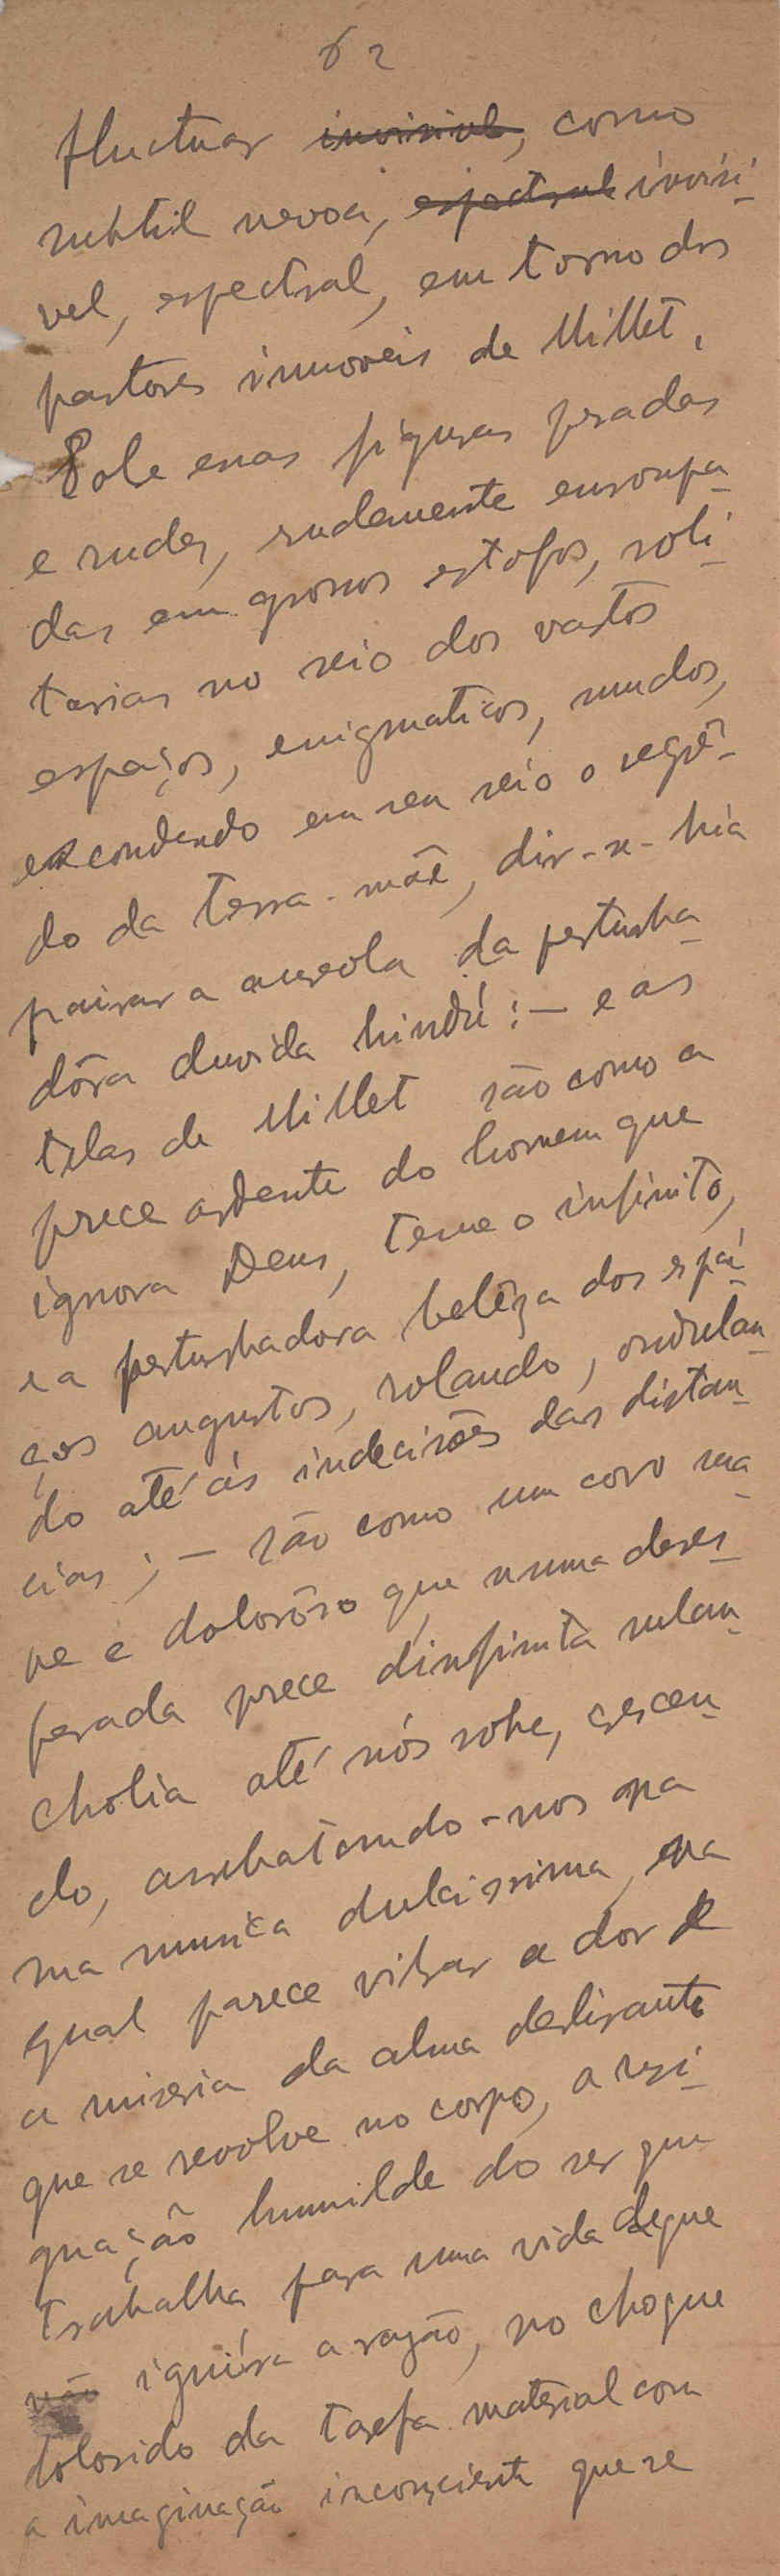 62
fluctuar invisivel, como
subtil nevoa, espectral invisi-
vel, espectral, em torno dos
pastores immoveis de Millet.
Sobre essas figuras pesadas
e rudes, rudemente enroupa-
das em grossos estofos, soli-
tarias no seio dos vastos
espaços, enigmaticos, mudos,
escondendo em seu seio o segrê-
do da terra-mãe, dir-se-hia
pairar a aureola da perturba-
dôra duvida hindú: – e as
telas de Millet são como a
prece ardente do homem que
ignora Deus, teme o infinito,
e a perturbadora belêza dos espa-
ços augustos, rolando, ondulan-
do até ás indecisões das distan-
cias; – são como um coro sua-
ve e dolorôso que numa deses-
perada prece d'infinita melan-
cholia até nós sobe, crescen-
do, arrebatando-nos na
sua musica dulcissima, na
qual parece vibrar a dor e
a miseria da alma delirante
que se revolve no corpo, a resi-
gnação humilde do ser que
trabalha para uma vida de que
não ignóra a razão, no choque
dolorido da tarefa material com
a imaginação inconsciente que se